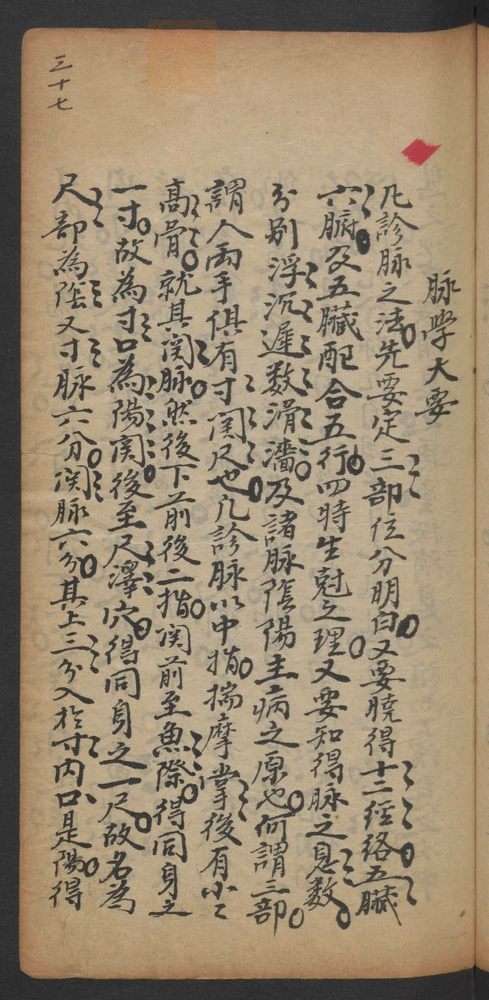 三十七
脉學大要
凡診脉之法先要定三部位分明白又要曉得十二經絡五臟
六腑及五臟配合五行四時生尅之理又要知得脉之息数
分别浮沉遲数滑濇及諸脉陰陽主病之原也何謂三部
謂人兩手俱有寸関尺也凡診脉以中指揣摩掌後有小〻
高骨就其関脉然後下前後二指関前至魚際得同身之
一寸故為寸口為陽関後至尺澤穴得同身之一尺故名為
尺部為陰又寸脉六分関脉六分其上三分入於寸内口是陽得